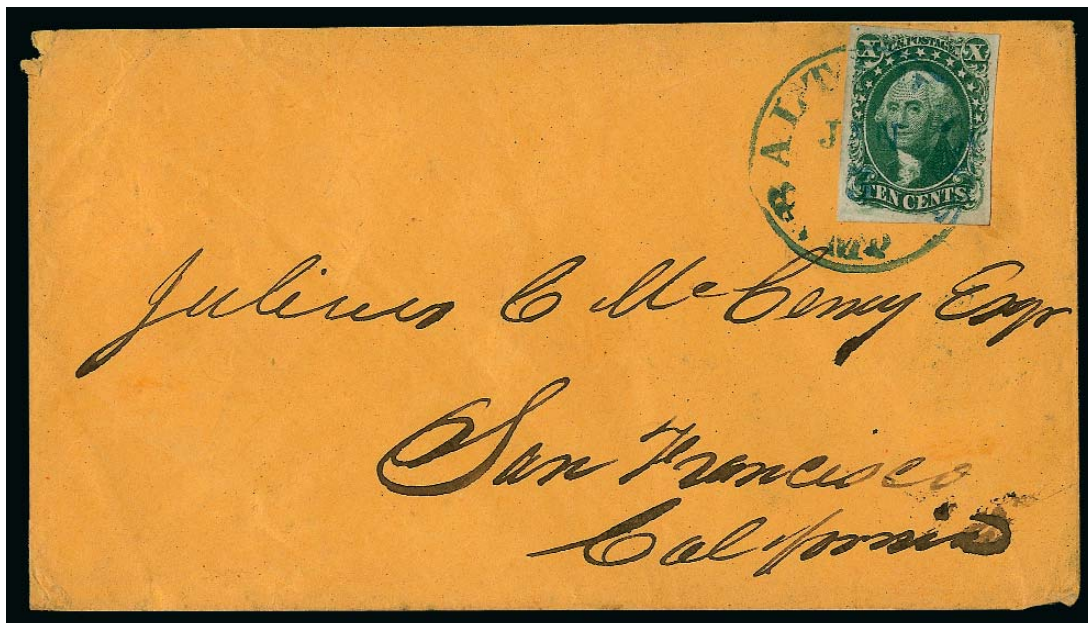 X U.S. POSTAGE X
BALT
J
TEN CENTS
Md
Julius C Mc Ceney Esqr
San Francisco
California